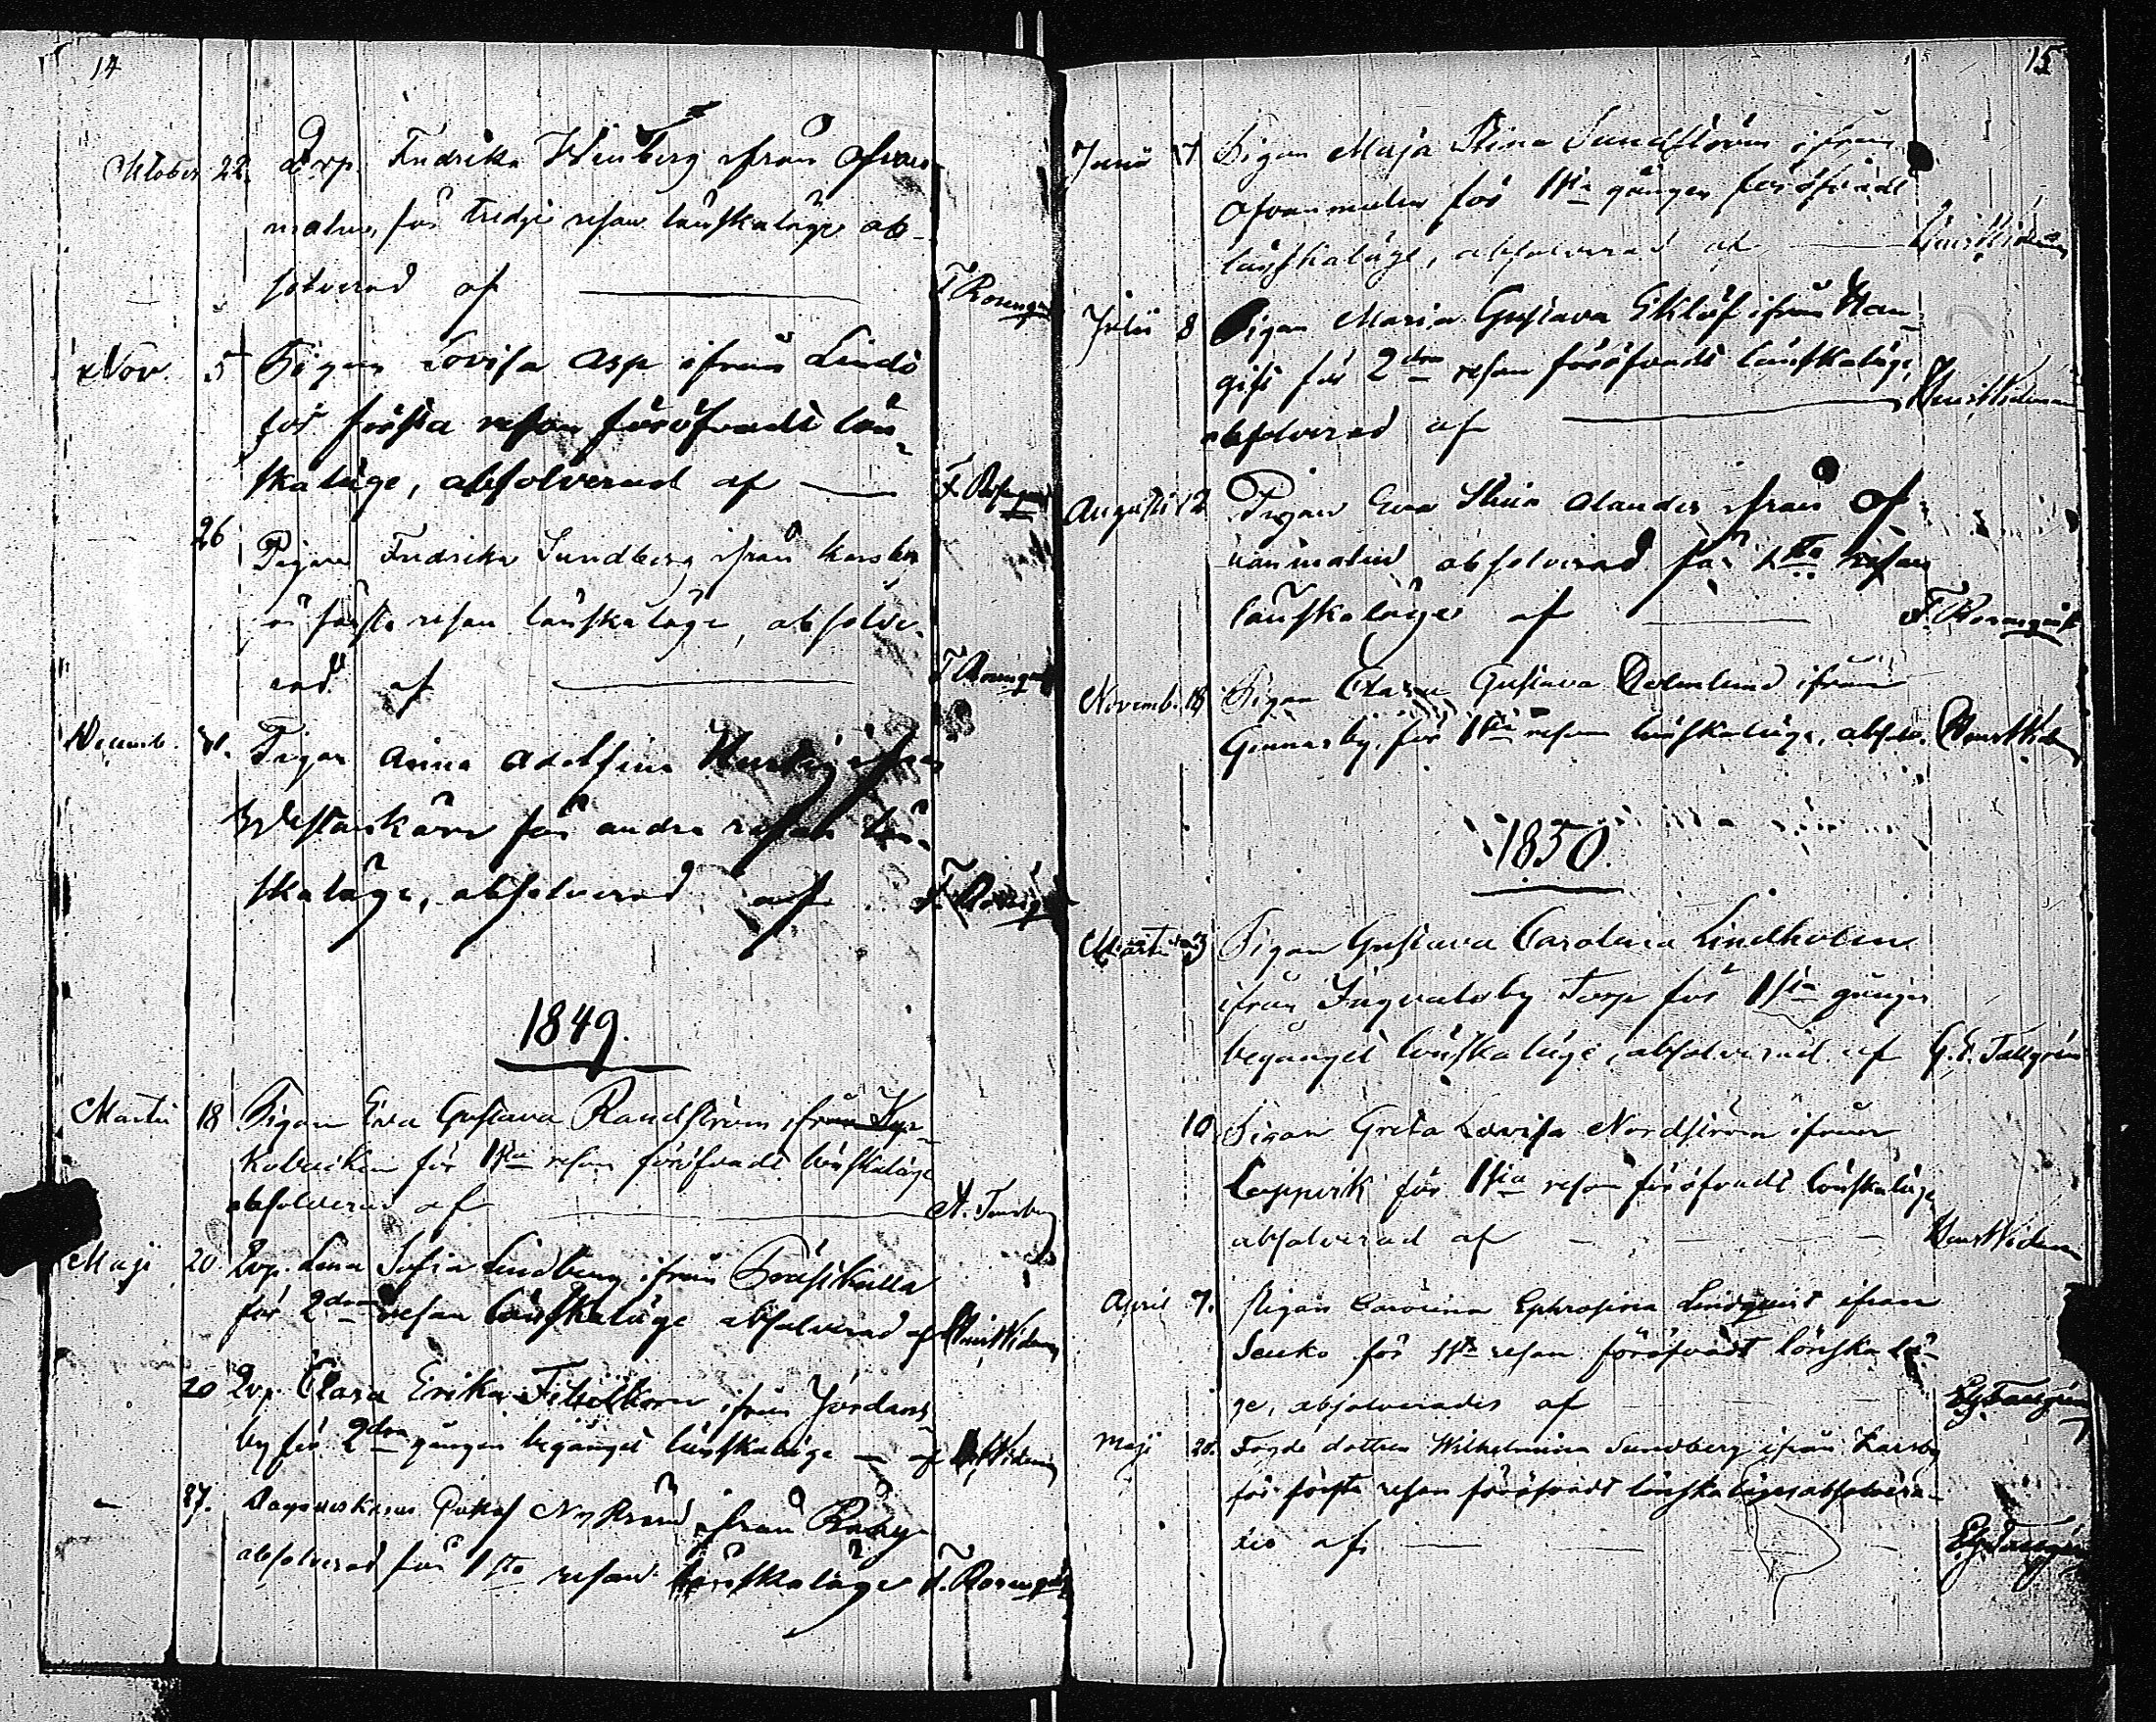 14
Oktober 22. Qvp. Fredrika Winberg ifrån Ofvan-
malm, för tredje resan lönskaläge ab-
solverad af — F Rosenqvist
Nov. 5 Pigan Lovisa Asp ifrån Lindö
för första resan föröfvadt lön-
skaläge, absolverad af — F. Rosenqvist
26 Pigan Fredrika Sundberg ifrån Karsby
för första resan lönskaläge, absolve-
rad af — F Rosenqvist
Decemb. Pigan Anna Adolfina ifrån
Westankärr för andra resan lön-
skaläge, absolverad af F. Rosenqvist
1849.
Martii 18 Pigan Eva Gustava Randström ifrån Kyr-
kobacken för 1sta resan föröfvadt lönskaläge
absolverad af — A.
Maji 20 Qvp. Lena Sofia Lindberg ifrån Prästkulla
för 2dra resan lönskaläge absolverad af
20 Qvp. Clara Erika ifrån Jordans-
by för 2dra gången begånget lönskaläge — af
— 27. Gustaf ifrån
absolverad för 1sta resan lönskaläge F. Rosenqvist
15
Junii 17 Pigan Maja Stina Sundström ifrån
Ofvanmalm för 1sta gången föröfvadt
lönskaläge, absolverad af —
Julii 8 Pigan Maria Gustava Eklöf ifrån Stan-
för 2dra resan föröfvadt lönskaläge,
absolverad af —
Augusti 12 Pigan Eva Stina Alander ifrån Of-
vanmalm absolverad för 1sta resan
lönskaläge af — F. Rosenqvist
Novemb. 18 Pigan Clara Gustava ifrån
Gennarby, för 1sta resan lönskaläge, absolv.
1850.
Martii 3 Pigan Gustava Carolina Lindholm
ifrån Ingvalsby Torp för 1sta gången
begånget lönskaläge, absolverad af G. E. Tallgren
10 Pigan Greta Lovisa Nordström ifrån
Lappvik för 1sta resan föröfvadt lönskaläge
absolverad af —
April 7. Pigan Carolina Ephrosina Lindqvist ifrån
för 1sta resan föröfvadt lönskalä-
ge, absolverades af — Tallgren
Maji 20. Fogde dottren Wilhelmina Sundberg ifrån Karsby
för första resan föröfvadt lönskaläge absolvera-
des af — Tallgren